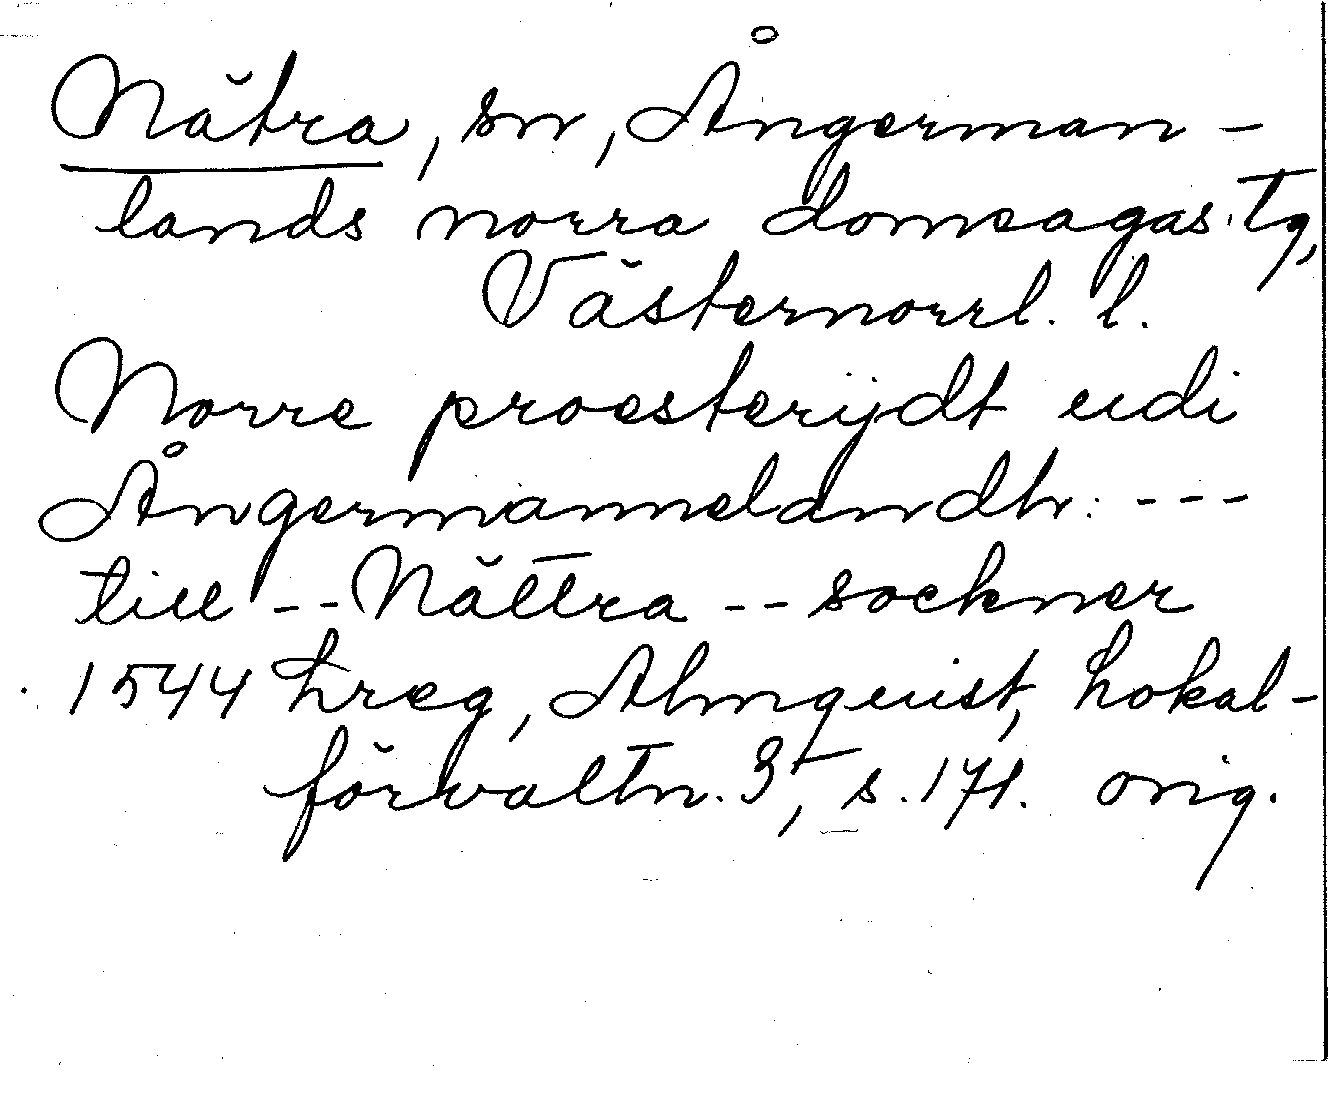 Nätra, sn, Ångerman-
lands norra domsagas tg,
Västernorrl. l.
Norre proesterijdt udi
Ångermannelandh: ---
till -- Nättra -- sockner
1544 Lreg, Almquist, Lokal-
förvaltn. 3, s. 171. orig.